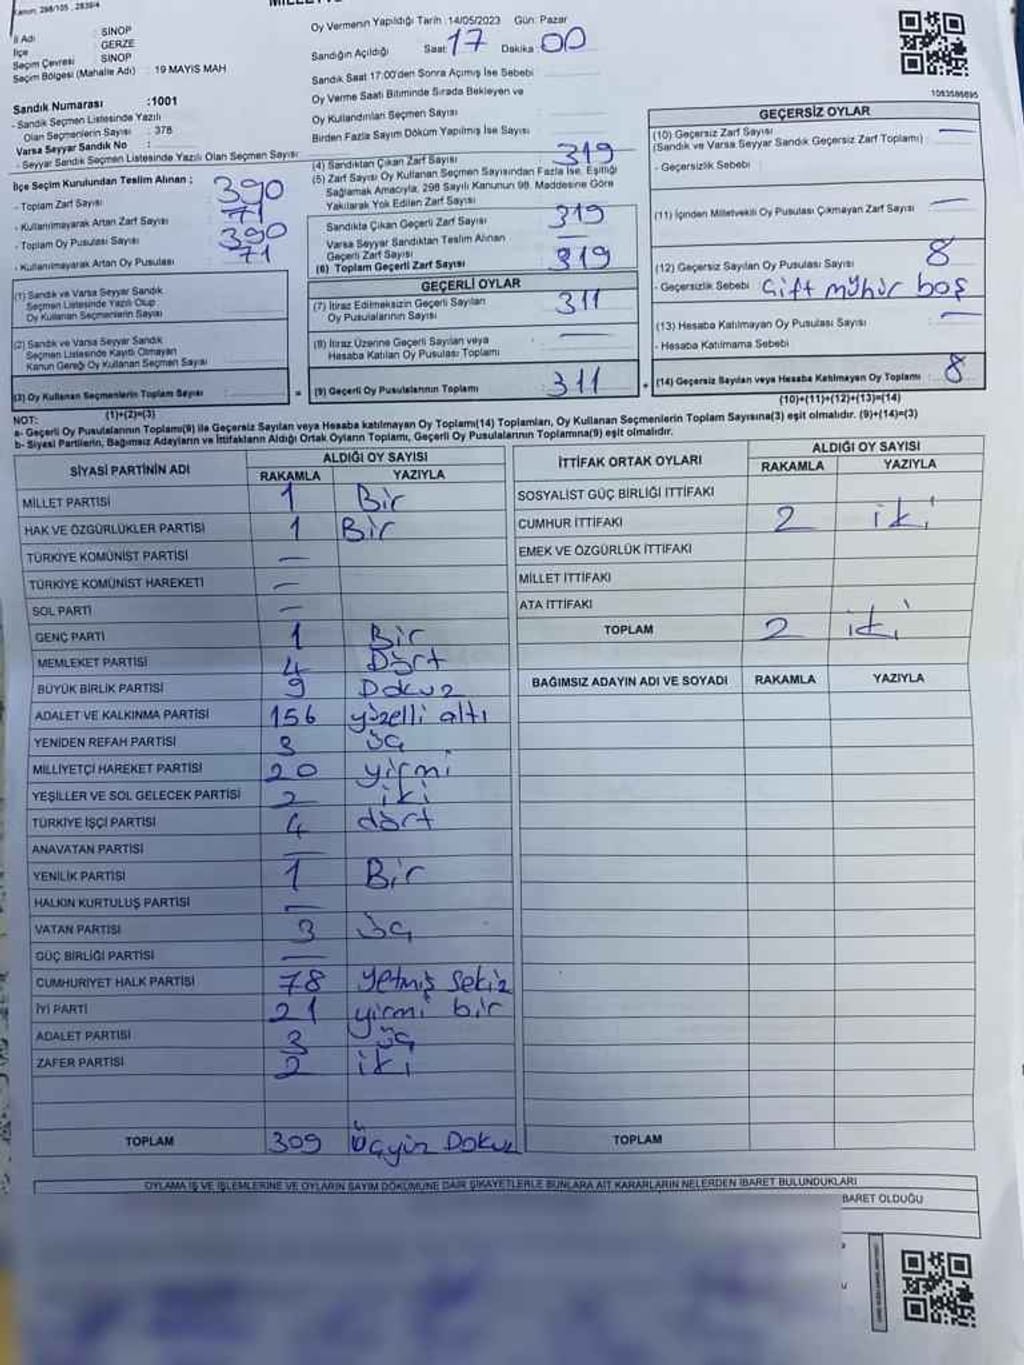 Kanun: 298/105 , 2839/4
İl Adı : SİNOP
İlçe : GERZE
Seçim Çevresi : SİNOP
Seçim Bölgesi (Mahalle Adı) : 19 MAYIS MAH
Sandık Numarası :1001
- Sandık Seçmen Listesinde Yazılı
Olan Seçmenlerin Sayısı : 378
Varsa Seyyar Sandık No :
- Seyyar Sandık Seçmen Listesinde Yazılı Olan Seçmen Sayısı
İlçe Seçim Kurulundan Teslim Alınan ;
- Toplam Zarf Sayısı : 390
- Kullanılmayarak Artan Zarf Sayısı : 71
- Toplam Oy Pusulası Sayısı : 390
- Kullanılmayarak Artan Oy Pusulası : 71
(1) Sandık ve Varsa Seyyar Sandık
Seçmen Listesinde Yazılı Olup
Oy Kullanan Seçmenlerin Sayısı
(2) Sandık ve Varsa Seyyar Sandık
Seçmen Listesinde Kayıtlı Olmayan
Kanun Gereği Oy Kullanan Seçmen Sayısı
(3) Oy Kullanan Seçmenlerin Toplam Sayısı :
(1)+(2)=(3)
Oy Vermenin Yapıldığı Tarih :14/05/2023 Gün: Pazar
Sandığın Açıldığı Saat: 17 Dakika: 00
Sandık Saat 17:00'den Sonra Açımış İse Sebebi
Oy Verme Saati Bitiminde Sırada Bekleyen ve
Oy Kullandırılan Seçmen Sayısı
Birden Fazla Sayım Döküm Yapılmış İse Sayısı
(4) Sandıktan Çıkan Zarf Sayısı : 319
(5) Zarf Sayısı Oy Kullanan Seçmen Sayısından Fazla İse, Eşitliği
Sağlamak Amacıyla, 298 Sayılı Kanunun 98. Maddesine Göre
Yakılarak Yok Edilen Zarf Sayısı
Sandıkta Çıkan Geçerli Zarf Sayısı 319
Varsa Seyyar Sandıktan Teslim Alınan
Geçerli Zarf Sayısı —
(6) Toplam Geçerli Zarf Sayısı 319
GEÇERLİ OYLAR
(7) İtiraz Edilmeksizin Geçerli Sayılan
Oy Pusulalarının Sayısı : 311
(8) İtiraz Üzerine Geçerli Sayılan veya
Hesaba Katılan Oy Pusulası Toplamı —
= (9) Geçerli Oy Pusulalarının Toplamı : 311 +
1083586895
GEÇERSİZ OYLAR
(10) Geçersiz Zarf Sayısı —
(Sandık ve Varsa Seyyar Sandık Geçersiz Zarf Toplamı)
- Geçersizlik Sebebi
(11) İçinden Milletvekili Oy Pusulası Çıkmayan Zarf Sayısı —
(12) Geçersiz Sayılan Oy Pusulası Sayısı : 8
- Geçersizlik Sebebi Çift mühür boş
(13) Hesaba Katılmayan Oy Pusulası Sayısı : —
- Hesaba Katılmama Sebebi
(14) Geçersiz Sayılan veya Hesaba Katılmayan Oy Toplamı : 8
(10)+(11)+(12)+(13)=(14)
NOT:
a- Geçerli Oy Pusulalarının Toplamı(9) ile Geçersiz Sayılan veya Hesaba katılmayan Oy Toplamı(14) Toplamları, Oy Kullanan Seçmenlerin Toplam Sayısına(3) eşit olmalıdır. (9)+(14)=(3)
b- Siyasi Partilerin, Bağımsız Adayların ve İttifakların Aldığı Ortak Oyların Toplamı, Geçerli Oy Pusulalarının Toplamına(9) eşit olmalıdır.
SİYASİ PARTİNİN ADI ALDIĞI OY SAYISI
RAKAMLA YAZIYLA
MİLLET PARTİSİ 1 Bir
HAK VE ÖZGÜRLÜKLER PARTİSİ 1 Bir
TÜRKİYE KOMÜNİST PARTİSİ —
TÜRKİYE KOMÜNİST HAREKETİ —
SOL PARTİ —
GENÇ PARTİ 1 Bir
MEMLEKET PARTİSİ 4 Dört
BÜYÜK BİRLİK PARTİSİ 9 Dokuz
ADALET VE KALKINMA PARTİSİ 156 yüzelli altı
YENİDEN REFAH PARTİSİ 3 üç
MİLLİYETÇİ HAREKET PARTİSİ 20 yirmi
YEŞİLLER VE SOL GELECEK PARTİSİ 2 iki
TÜRKİYE İŞÇİ PARTİSİ 4 dört
ANAVATAN PARTİSİ —
YENİLİK PARTİSİ 1 Bir
HALKIN KURTULUŞ PARTİSİ —
VATAN PARTİSİ 3 üç
GÜÇ BİRLİĞİ PARTİSİ —
CUMHURİYET HALK PARTİSİ 78 yetmiş sekiz
İYİ PARTİ 21 yirmi bir
ADALET PARTİSİ 3 üç
ZAFER PARTİSİ 2 iki
TOPLAM 309 Üçyüz Dokuz
İTTİFAK ORTAK OYLARI ALDIĞI OY SAYISI
RAKAMLA YAZIYLA
SOSYALİST GÜÇ BİRLİĞİ İTTİFAKI
CUMHUR İTTİFAKI 2 iki
EMEK VE ÖZGÜRLÜK İTTİFAKI
MİLLET İTTİFAKI
ATA İTTİFAKI
TOPLAM 2 iki
BAĞIMSIZ ADAYIN ADI VE SOYADI RAKAMLA YAZIYLA
TOPLAM
OYLAMA İŞ VE İŞLEMLERİNE VE OYLARIN SAYIM DÖKÜMÜNE DAİR ŞİKAYETLERLE BUNLARA AİT KARARLARIN NELERDEN İBARET BULUNDUKLARI
BARET OLDUĞU